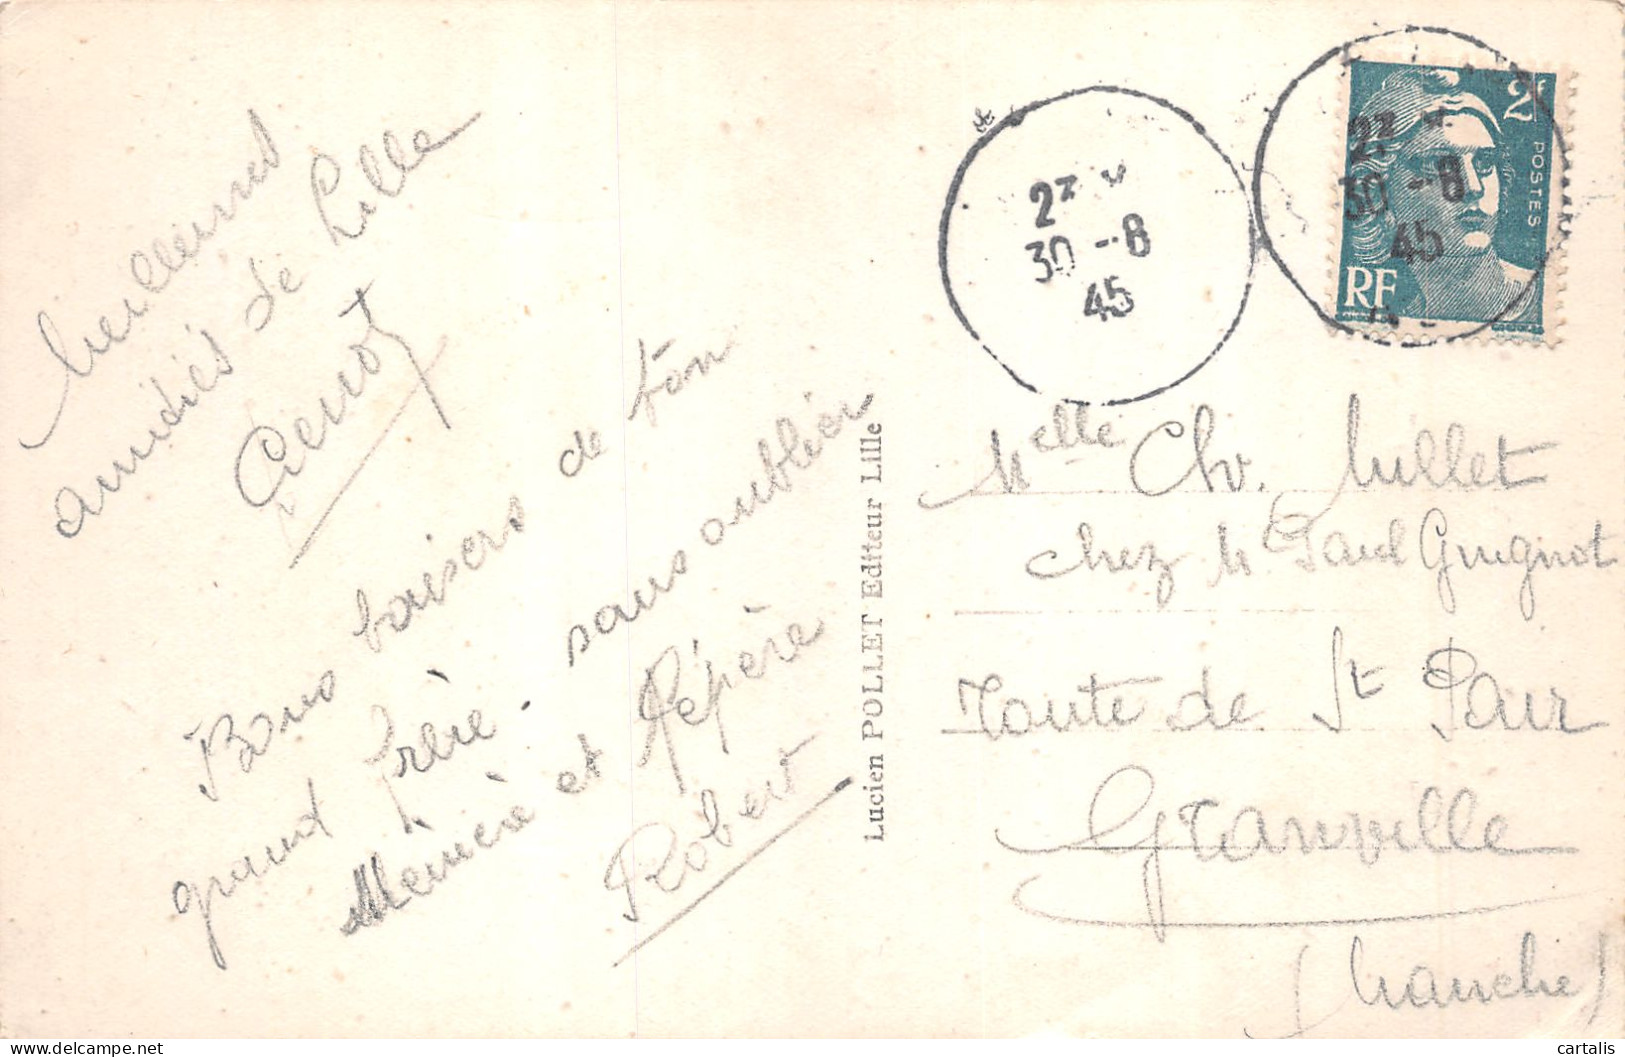 Meilleures
amitiés de Lille
Bons baisers de ton
grand frère. sans oublier
Mémère et Pépère
Robert
Lucien POLLET Editeur Lille
23
30 -8
45
23
30 -8
45
2F
POSTES
RF
Melle Ch. Mullet
chez M Paul Guignot
Route de St Pair
Granville
(Manche)
cartalis
delcampe.net